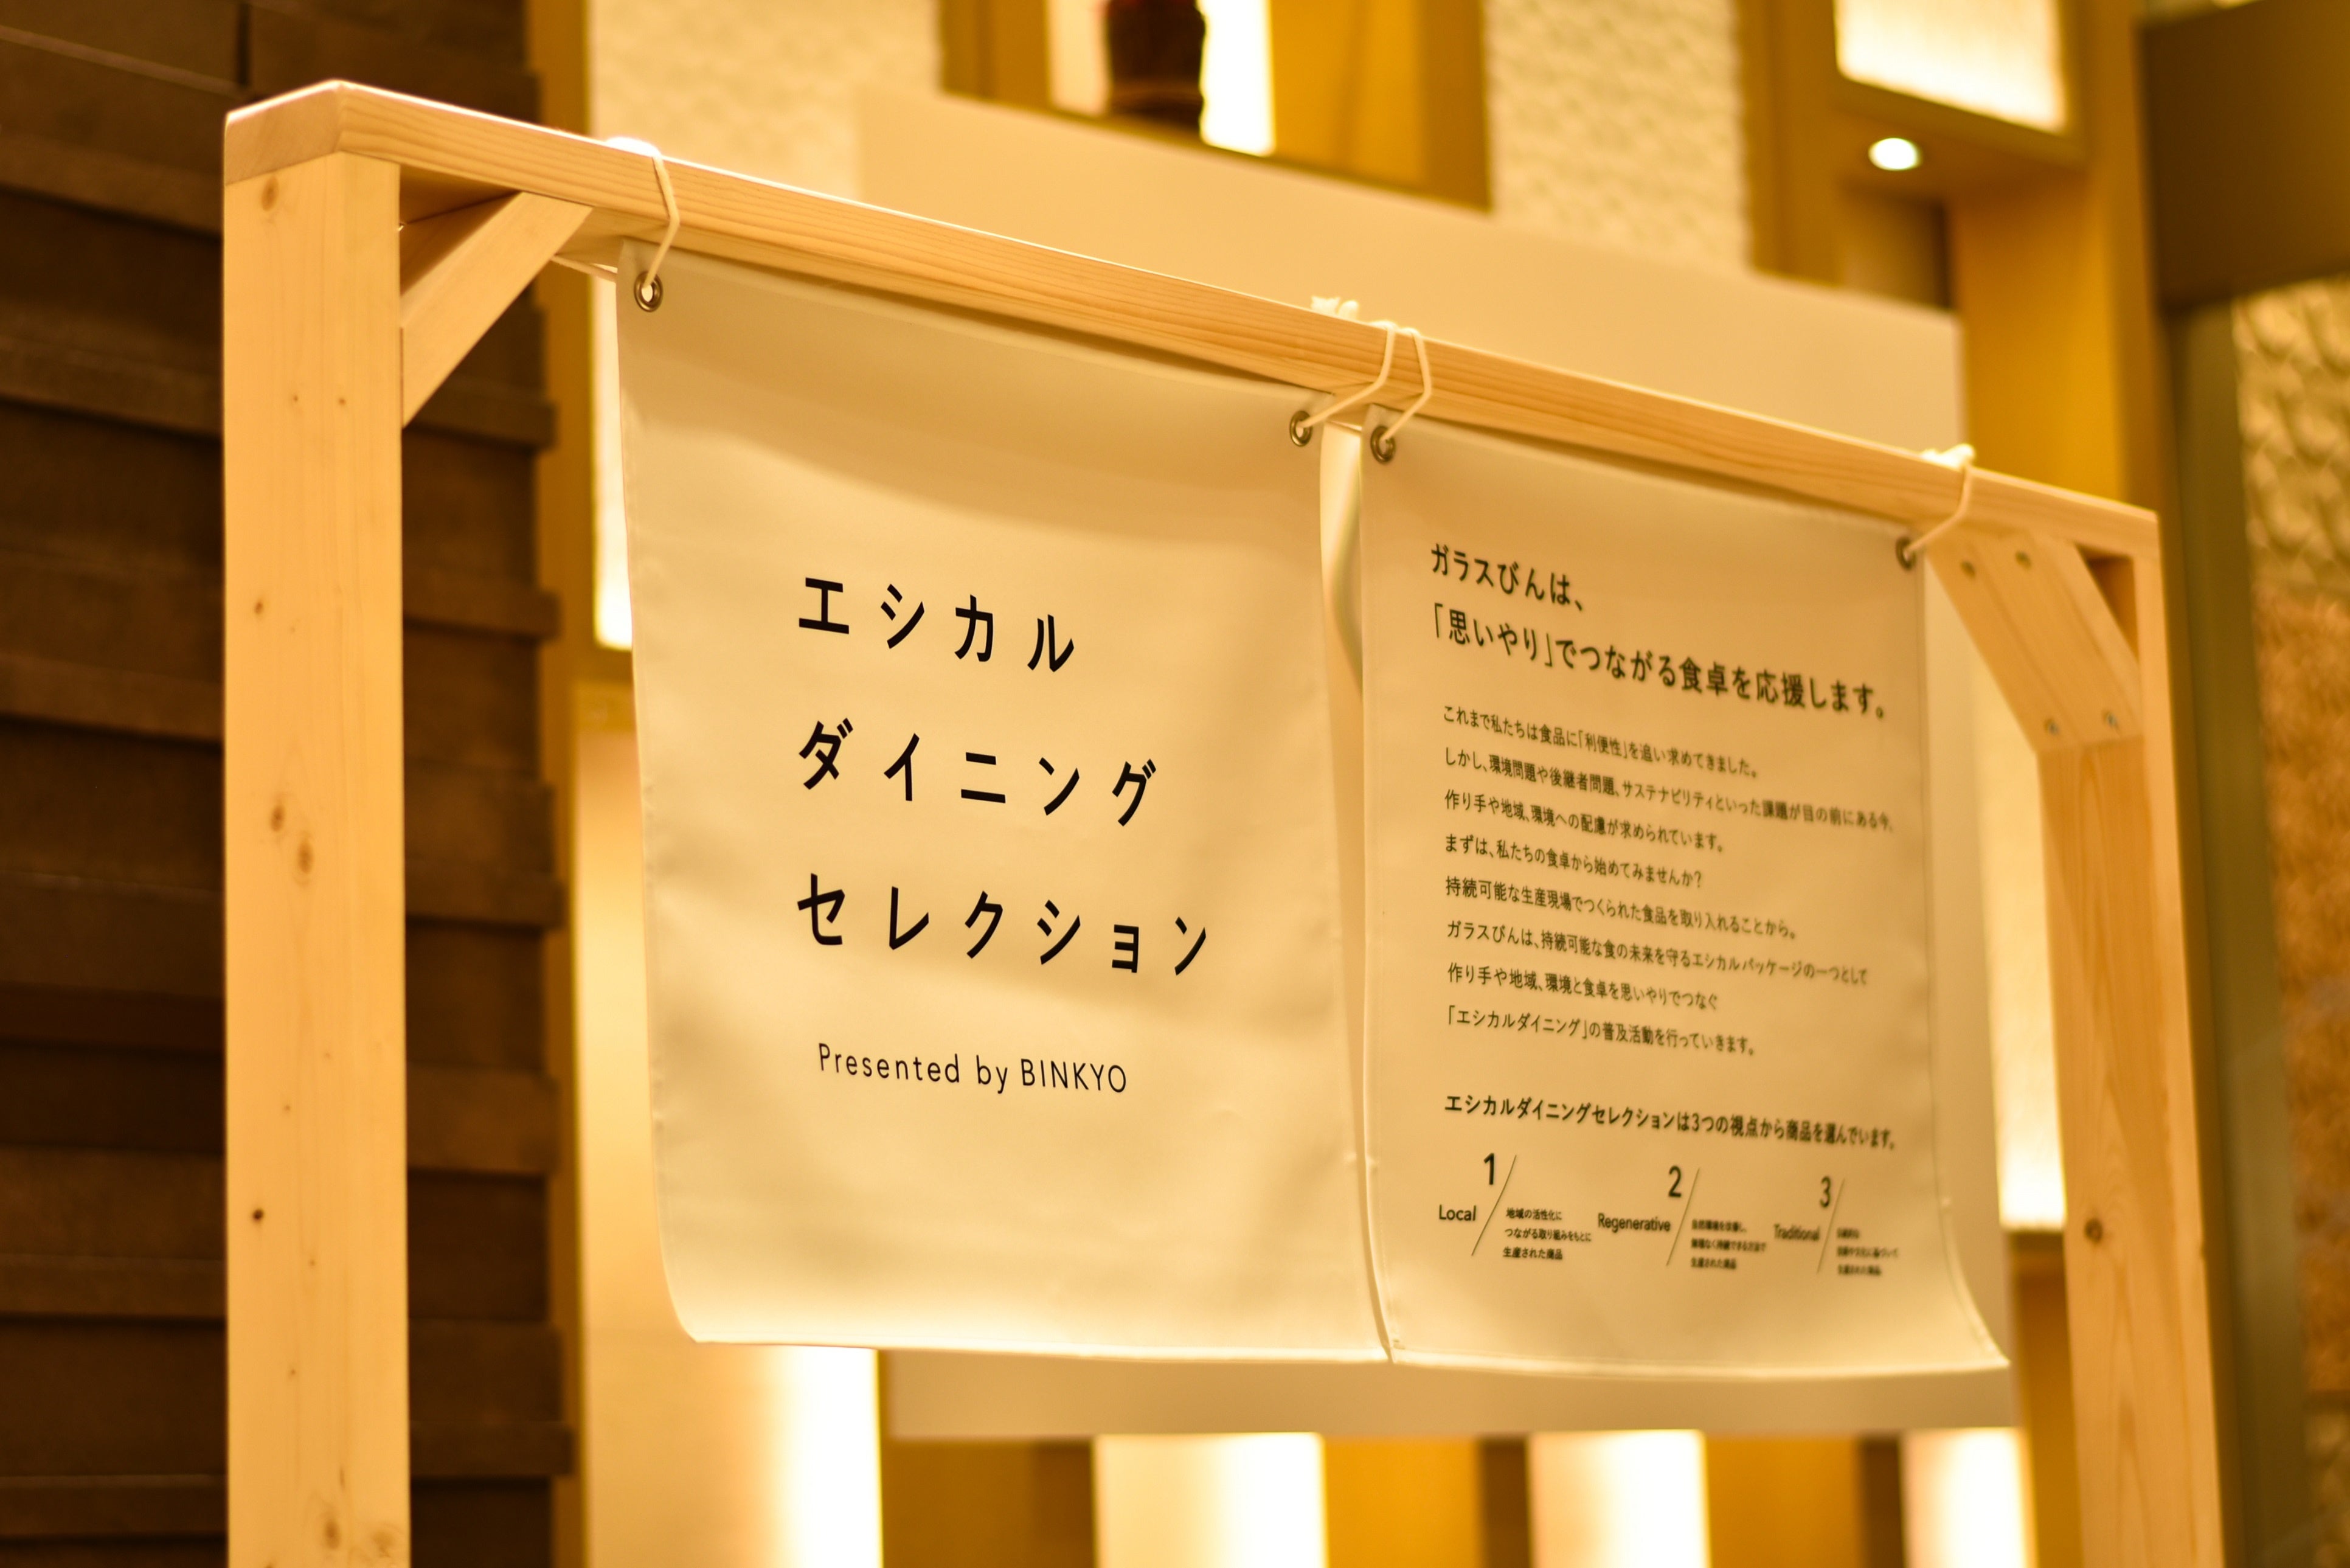 エシカル
ダイニング
セレクション
Presented by BINKYO
ガラスびんは、
「思いやり」でつながる食卓を応援します。
これまで私たちは食品に「利便性」を追い求めてきました。
しかし、環境問題や後継者問題、サステナビリティといった課題が目の前にある今、
作り手や地域、環境への配慮が求められています。
まずは、私たちの食卓から始めてみませんか?
持続可能な生産現場でつくられた食品を取り入れることから。
ガラスびんは、持続可能な食の未来を守るエシカルパッケージの一つとして
作り手や地域、環境と食卓を思いやりでつなぐ
「エシカルダイニング」の普及活動を行っていきます。
エシカルダイニングセレクションは3つの視点から商品を選んでいます。
1
Local
地域の活性化に
つながる取り組みをもとに
生産された商品
2
Regenerative
自然環境を改善し、
無理なく持続できる方法で
生産された商品
3
Traditional
生産された商品